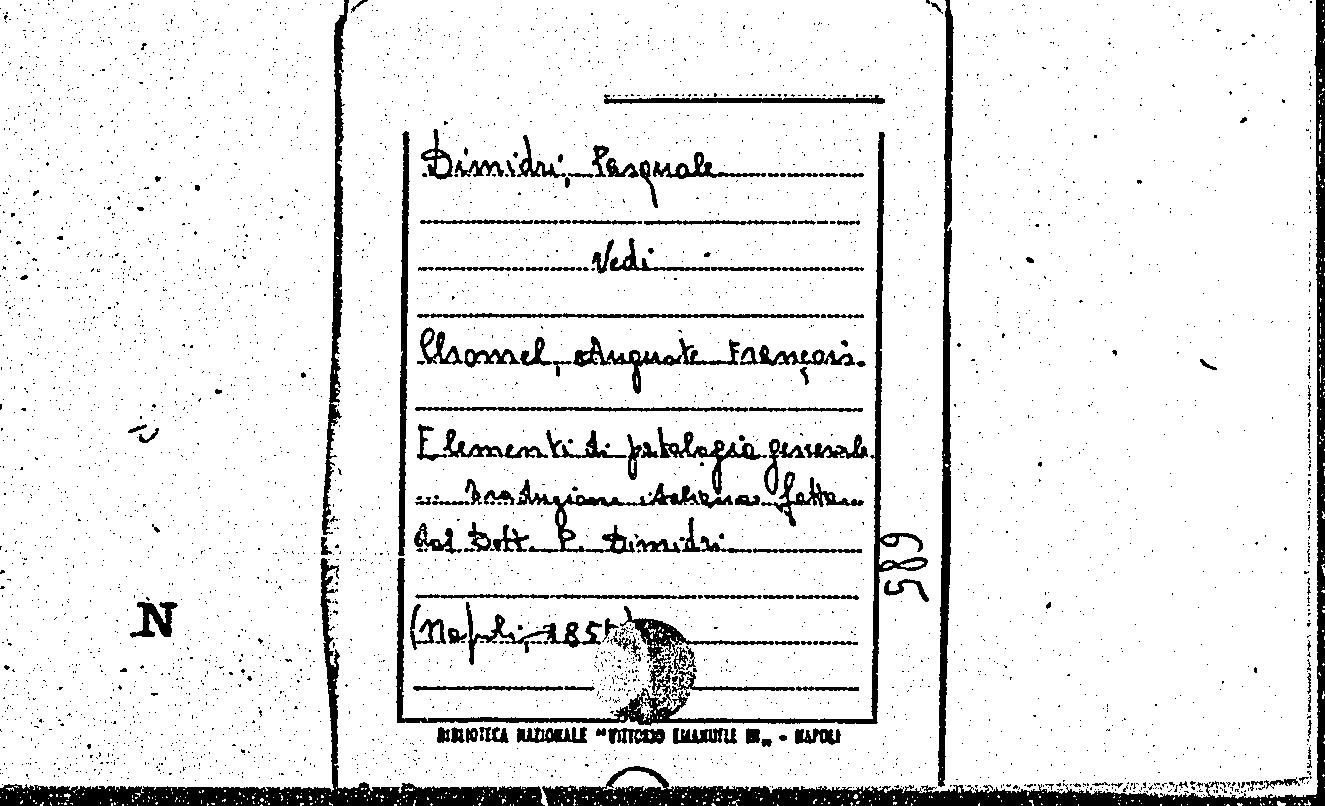 Dimidri, Pasquale
Vedi
Chomel, Auguste François.
Elementi di patologia generale
... Traduzione italiana fatta
dal Dott. P. Dimidri.
(Napoli,
589
N
BIBLIOTECA NAZIONALE "VITTORIO EMANUELE III„ - NAPOLI